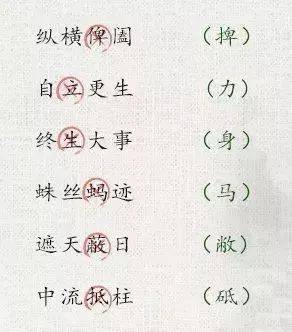 纵横俾阖 （捭）
自立更生 （力）
终生大事 （身）
蛛丝蚂迹 （马）
遮天蔽日 （敝）
中流抵柱 （砥）